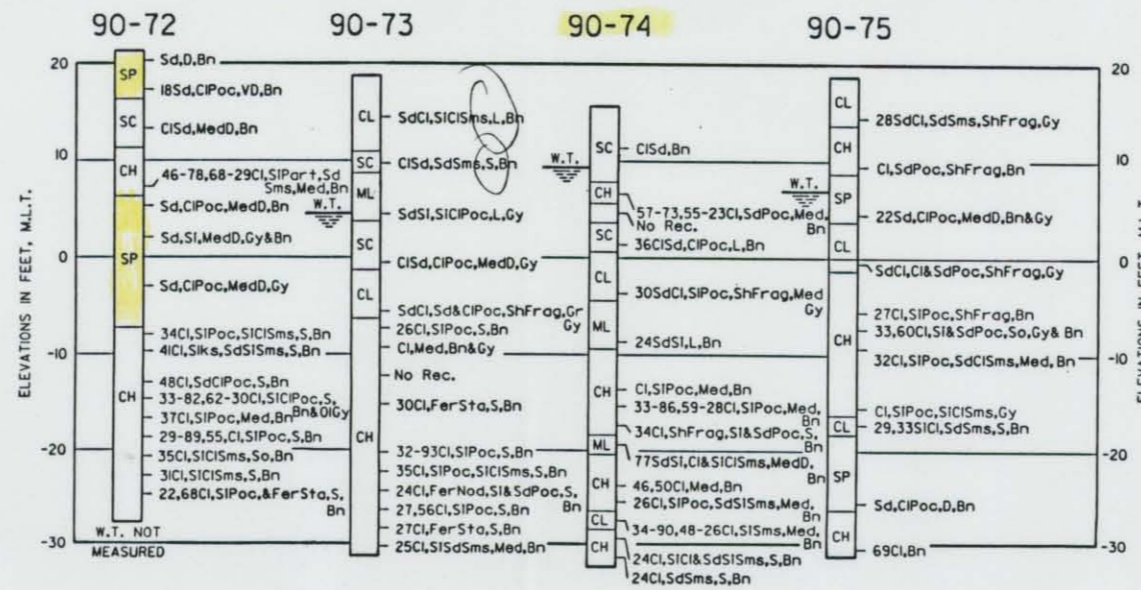 90-72
90-73
90-74
90-75
ELEVATIONS IN FEET, M.L.T.
20
10
0
-10
-20
-30
SP
SC
CH
SP
CH
Sd,D,Bn
18Sd,ClPoc,VD,Bn
ClSd,MedD,Bn
46-78,68-29Cl,SlPart,Sd
Sms,Med,Bn
Sd,ClPoc,MedD,Bn
Sd,Sl,MedD,Gy&Bn
Sd,ClPoc,MedD,Gy
34Cl,SlPoc,SlClSms,S,Bn
41Cl,Slks,SdSlSms,S,Bn
48Cl,SdClPoc,S,Bn
33-82,62-30Cl,SlClPoc,S,
Bn&OlGy
37Cl,SlPoc,Med,Bn
29-89,55,Cl,SlPoc,S,Bn
35Cl,SlClSms,So,Bn
31Cl,SlClSms,S,Bn
22,68Cl,SlPoc,&FerSta,S,
Bn
W.T. NOT
MEASURED
CL
SC
ML
SC
CL
CH
W.T.
SdCl,SlClSms,L,Bn
ClSd,SdSms,S,Bn
SdSl,SlClPoc,L,Gy
ClSd,ClPoc,MedD,Gy
SdCl,Sd&ClPoc,ShFrag,Gr
Gy
26Cl,SlPoc,S,Bn
Cl,Med,Bn&Gy
No Rec.
30Cl,FerSta,S,Bn
32-93Cl,SlPoc,S,Bn
35Cl,SlPoc,SlClSms,S,Bn
24Cl,FerNod,Sl&SdPoc,S,
Bn
27,56Cl,SlPoc,S,Bn
27Cl,FerSta,S,Bn
25Cl,SlSdSms,Med,Bn
W.T.
SC
CH
SC
CL
ML
CH
ML
CH
CL
CH
ClSd,Bn
57-73,55-23Cl,SdPoc,Med,
Bn
No Rec.
36ClSd,ClPoc,L,Bn
30SdCl,SlPoc,ShFrag,Med
Gy
24SdSl,L,Bn
Cl,SlPoc,Med,Bn
33-86,59-28Cl,SlPoc,Med,
Bn
34Cl,ShFrag,Sl&SdPoc,S,
Bn
77SdSl,Cl&SlClSms,MedD,
Bn
46,50Cl,Med,Bn
26Cl,SlPoc,SdSlSms,Med,
Bn
34-90,48-26Cl,SlSms,Med,
Bn
24Cl,SlCl&SdSlSms,S,Bn
24Cl,SdSms,S,Bn
W.T.
CL
CH
SP
CL
CH
CL
SP
CH
28SdCl,SdSms,ShFrag,Gy
Cl,SdPoc,ShFrag,Bn
22Sd,ClPoc,MedD,Bn&Gy
SdCl,Cl&SdPoc,ShFrag,Gy
27Cl,SlPoc,ShFrag,Bn
33,60Cl,Sl&SdPoc,So,Gy& Bn
32Cl,SlPoc,SdClSms,Med,Bn
Cl,SlPoc,SlClSms,Gy
29,33SlCl,SdSms,S,Bn
Sd,ClPoc,D,Bn
69Cl,Bn
20
10
0
-10
-20
-30
ELEVATIONS IN FEET, M.L.T.